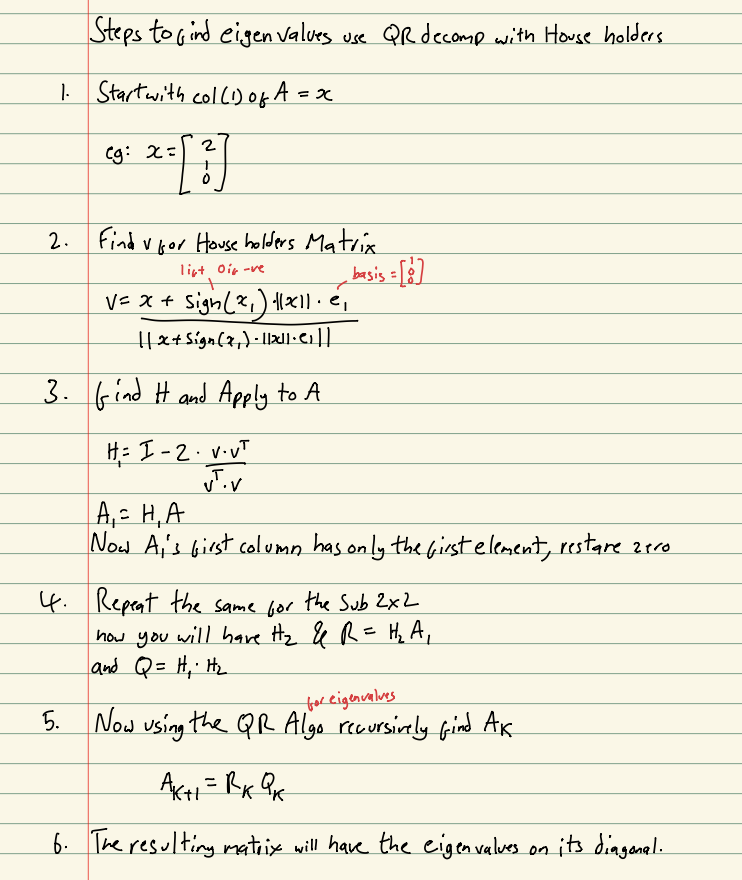 Steps to find eigen values use QR decomp with House holders
1. Start with col(1) of A = x
eg: x = [2 1 0]
2. Find v for House holders Matrix
if +, 0 if -ve
basis = [1 0 0]
v = x + sign(x₁)·||x||·e₁
||x + sign(x₁)·||x||·e₁||
3. find H and Apply to A
H₁ = I - 2 · v·vᵀ
vᵀ·v
A₁ = H₁A
Now A₁'s first column has only the first element, rest are zero
4. Repeat the same for the Sub 2x2
now you will have H₂ & R = H₂A₁
and Q = H₁·H₂
for eigenvalues
5. Now using the QR Algo recursively find Aₖ
Aₖ₊₁ = Rₖ Qₖ
6. The resulting matrix will have the eigenvalues on its diagonal.